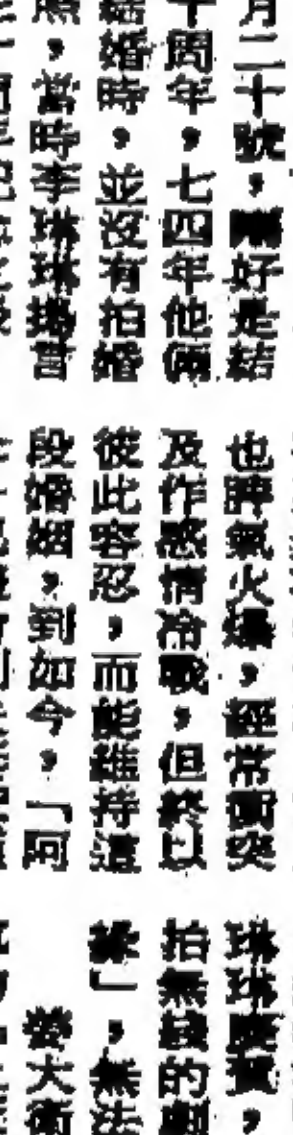 月二十號，剛好是結
十周年，七四年他倆
結婚時，並沒有拍婚
照，當時李琳琳揚言
也脾氣火爆，經常衝突
及作感情冷戰，但終以
彼此容忍，而能維持這
段婚姻，到如今，「阿
琳琳慶賀，
拍無綫的劇
緣」，無法
姜大衛